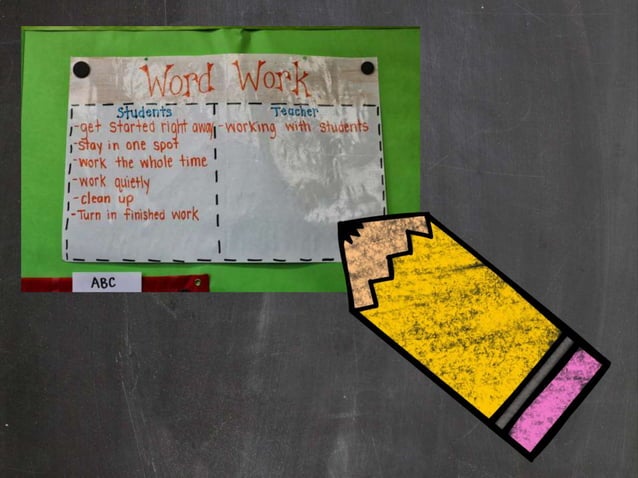 Word Work
Students
-get started right away
-stay in one spot
-work the whole time
-work quietly
-clean up
-Turn in finished work
Teacher
-working with students
ABC